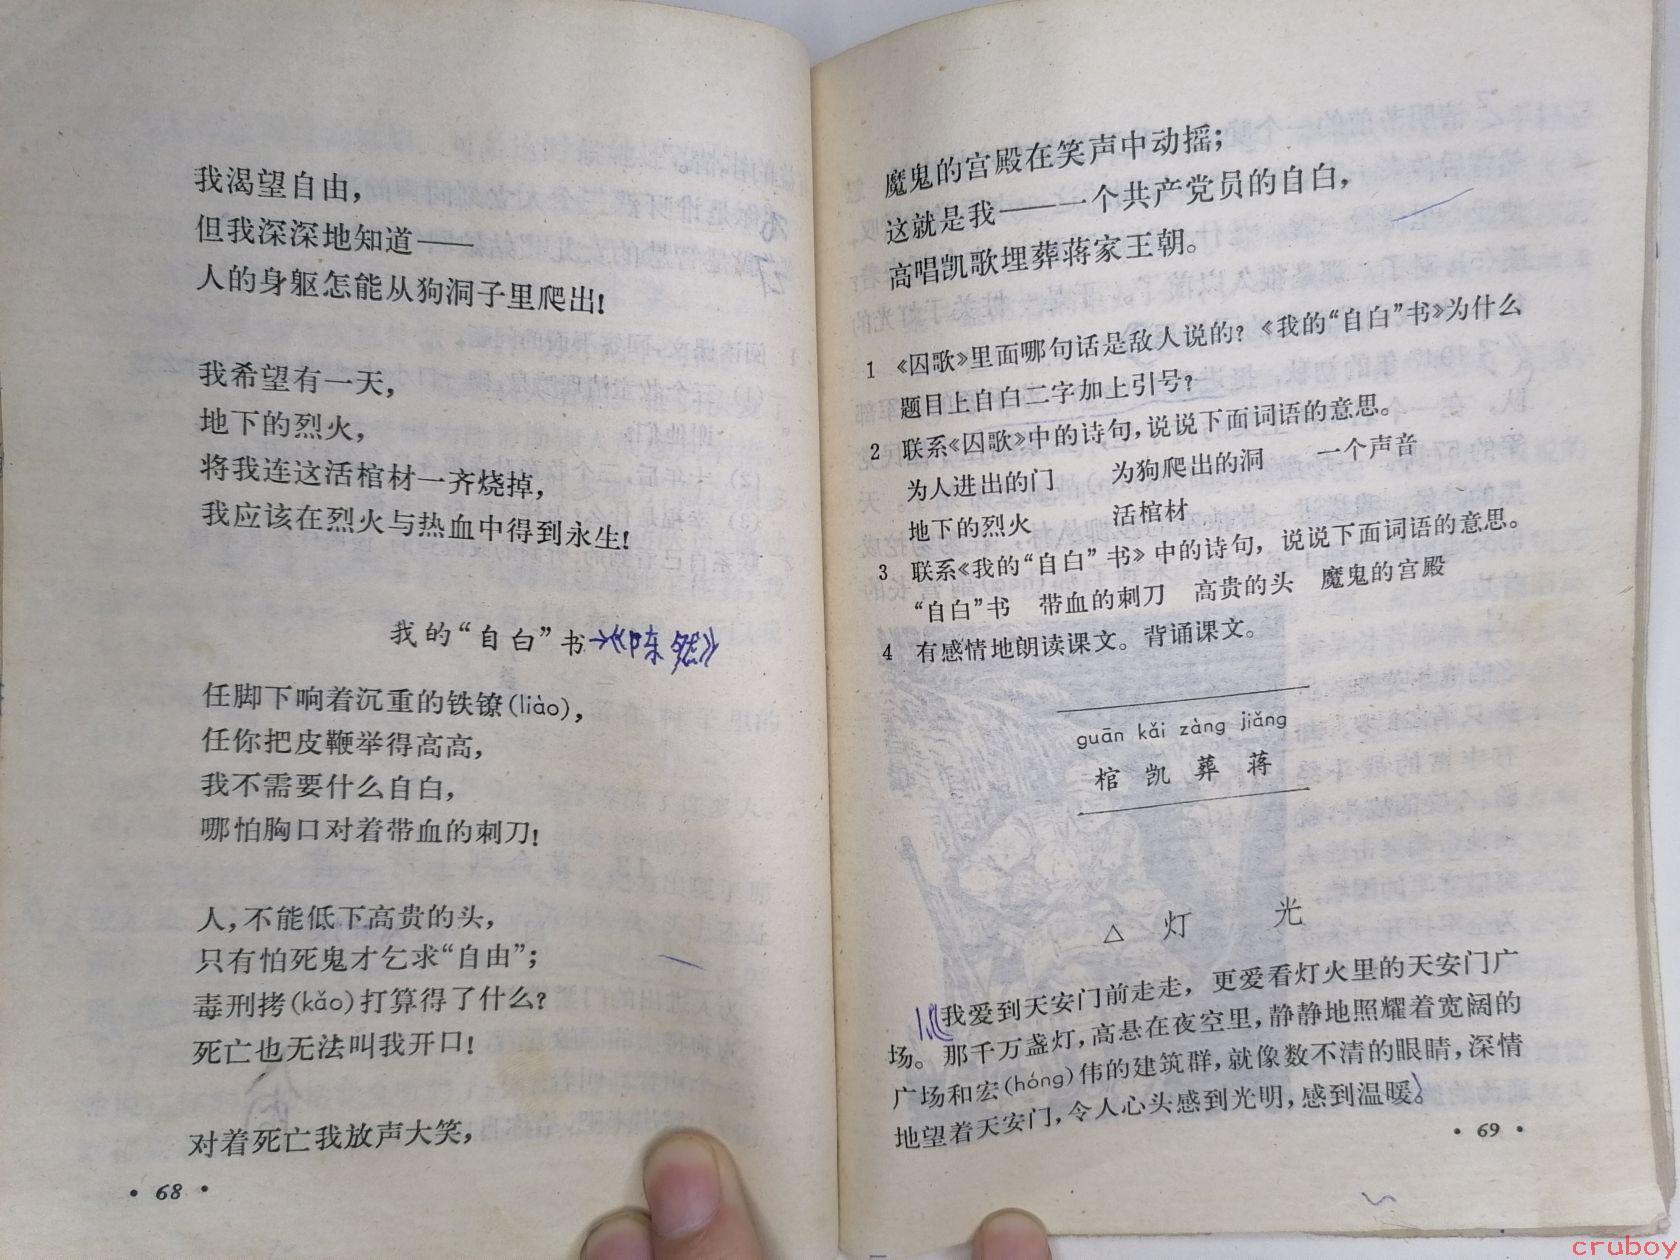 我渴望自由，
但我深深地知道——
人的身躯怎能从狗洞子里爬出！
我希望有一天，
地下的烈火，
将我连这活棺材一齐烧掉，
我应该在烈火与热血中得到永生！
我的“自白”书→《陈然》
任脚下响着沉重的铁镣(liào)，
任你把皮鞭举得高高，
我不需要什么自白，
哪怕胸口对着带血的刺刀！
人，不能低下高贵的头，
只有怕死鬼才乞求“自由”；
毒刑拷(kǎo)打算得了什么？
死亡也无法叫我开口！
对着死亡我放声大笑，
·68·
魔鬼的宫殿在笑声中动摇；
这就是我——一个共产党员的自白，
高唱凯歌埋葬蒋家王朝。
1 《囚歌》里面哪句话是敌人说的？《我的“自白”书》为什么
题目上自白二字加上引号？
2 联系《囚歌》中的诗句，说说下面词语的意思。
为人进出的门 为狗爬出的洞 一个声音
地下的烈火 活棺材
3 联系《我的“自白”书》中的诗句，说说下面词语的意思。
“自白”书 带血的刺刀 高贵的头 魔鬼的宫殿
4 有感情地朗读课文。背诵课文。
guān kǎi zàng jiǎng
棺 凯 葬 蒋
△ 灯 光
我爱到天安门前走走，更爱看灯火里的天安门广
场。那千万盏灯，高悬在夜空里，静静地照耀着宽阔的
广场和宏(hóng)伟的建筑群，就像数不清的眼睛，深情
地望着天安门，令人心头感到光明，感到温暖。
·69·
cruboy